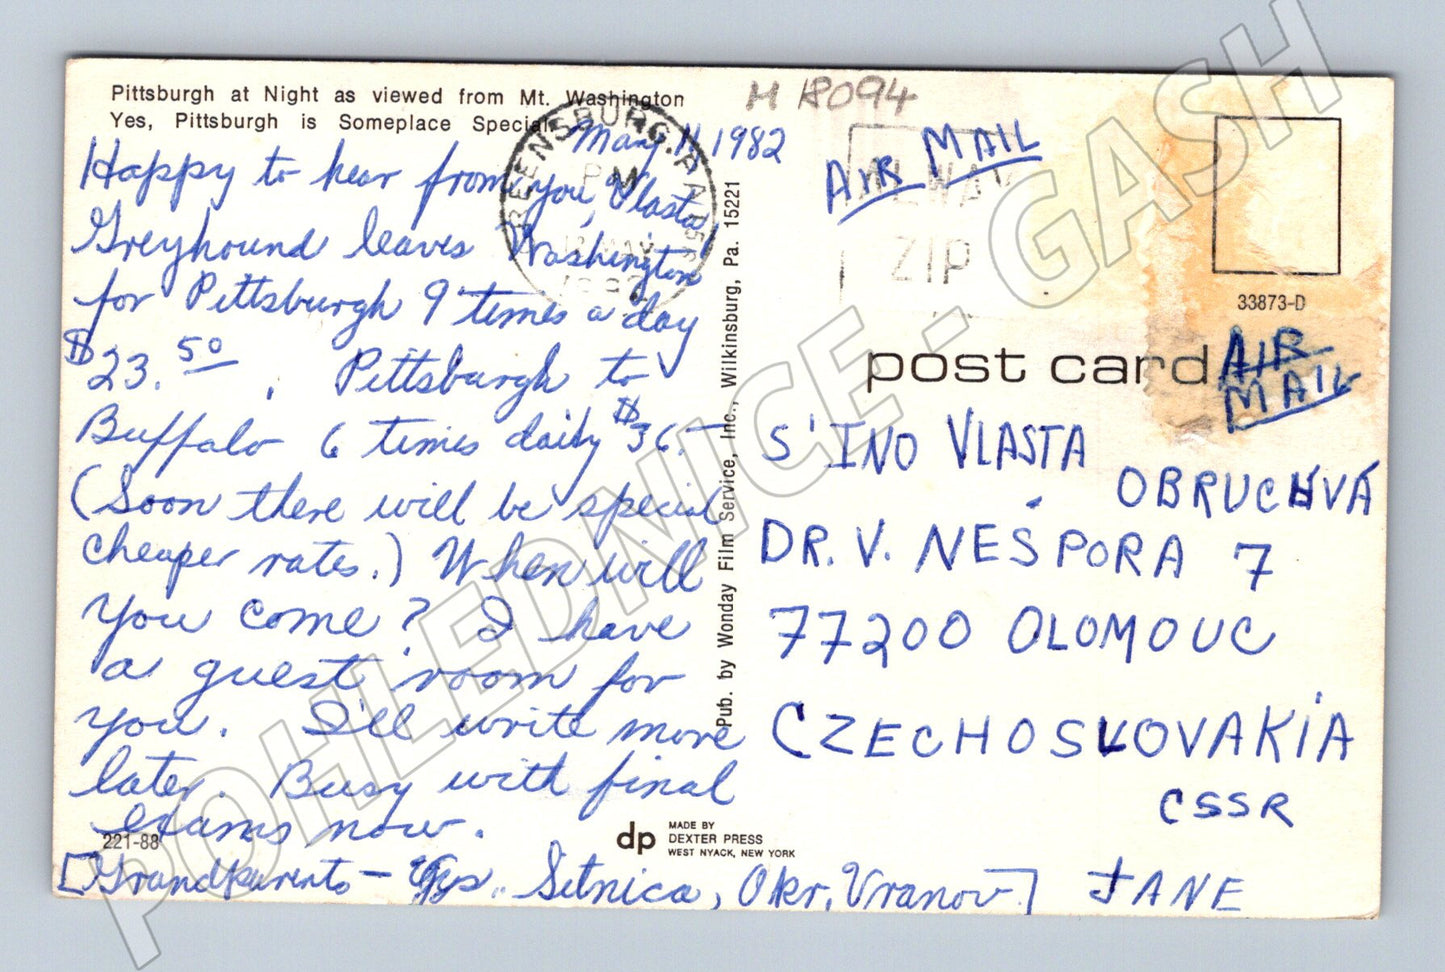 Pittsburgh at Night as viewed from Mt. Washington
Yes, Pittsburgh is Someplace Special.
May 11, 1982
Happy to hear from you, Vlasta!
Greyhound leaves Washington
for Pittsburgh 9 times a day
$23.50. Pittsburgh to
Buffalo 6 times daily $36.-
(Soon there will be special
cheaper rates.) When will
you come? I have
a guest room for
you. I'll write more
later. Busy with final
exams now.
[Grandparents - Setnica, Okr. Vranov]
JANE
221-88
GREENSBURG, PA
PM
MAY
1982
Pub. by Wonday Film Service, Inc., Wilkinsburg, Pa. 15221
dp
MADE BY
DEXTER PRESS
WEST NYACK, NEW YORK
H 18094
AIR MAIL
ZIP
33873-D
post card
AIR
MAIL
S'INO VLASTA
OBRUCHVÁ
DR. V. NESPORA 7
77200 OLOMOUC
CZECHOSLOVAKIA
CSSR
POHLEDNICE - GASH